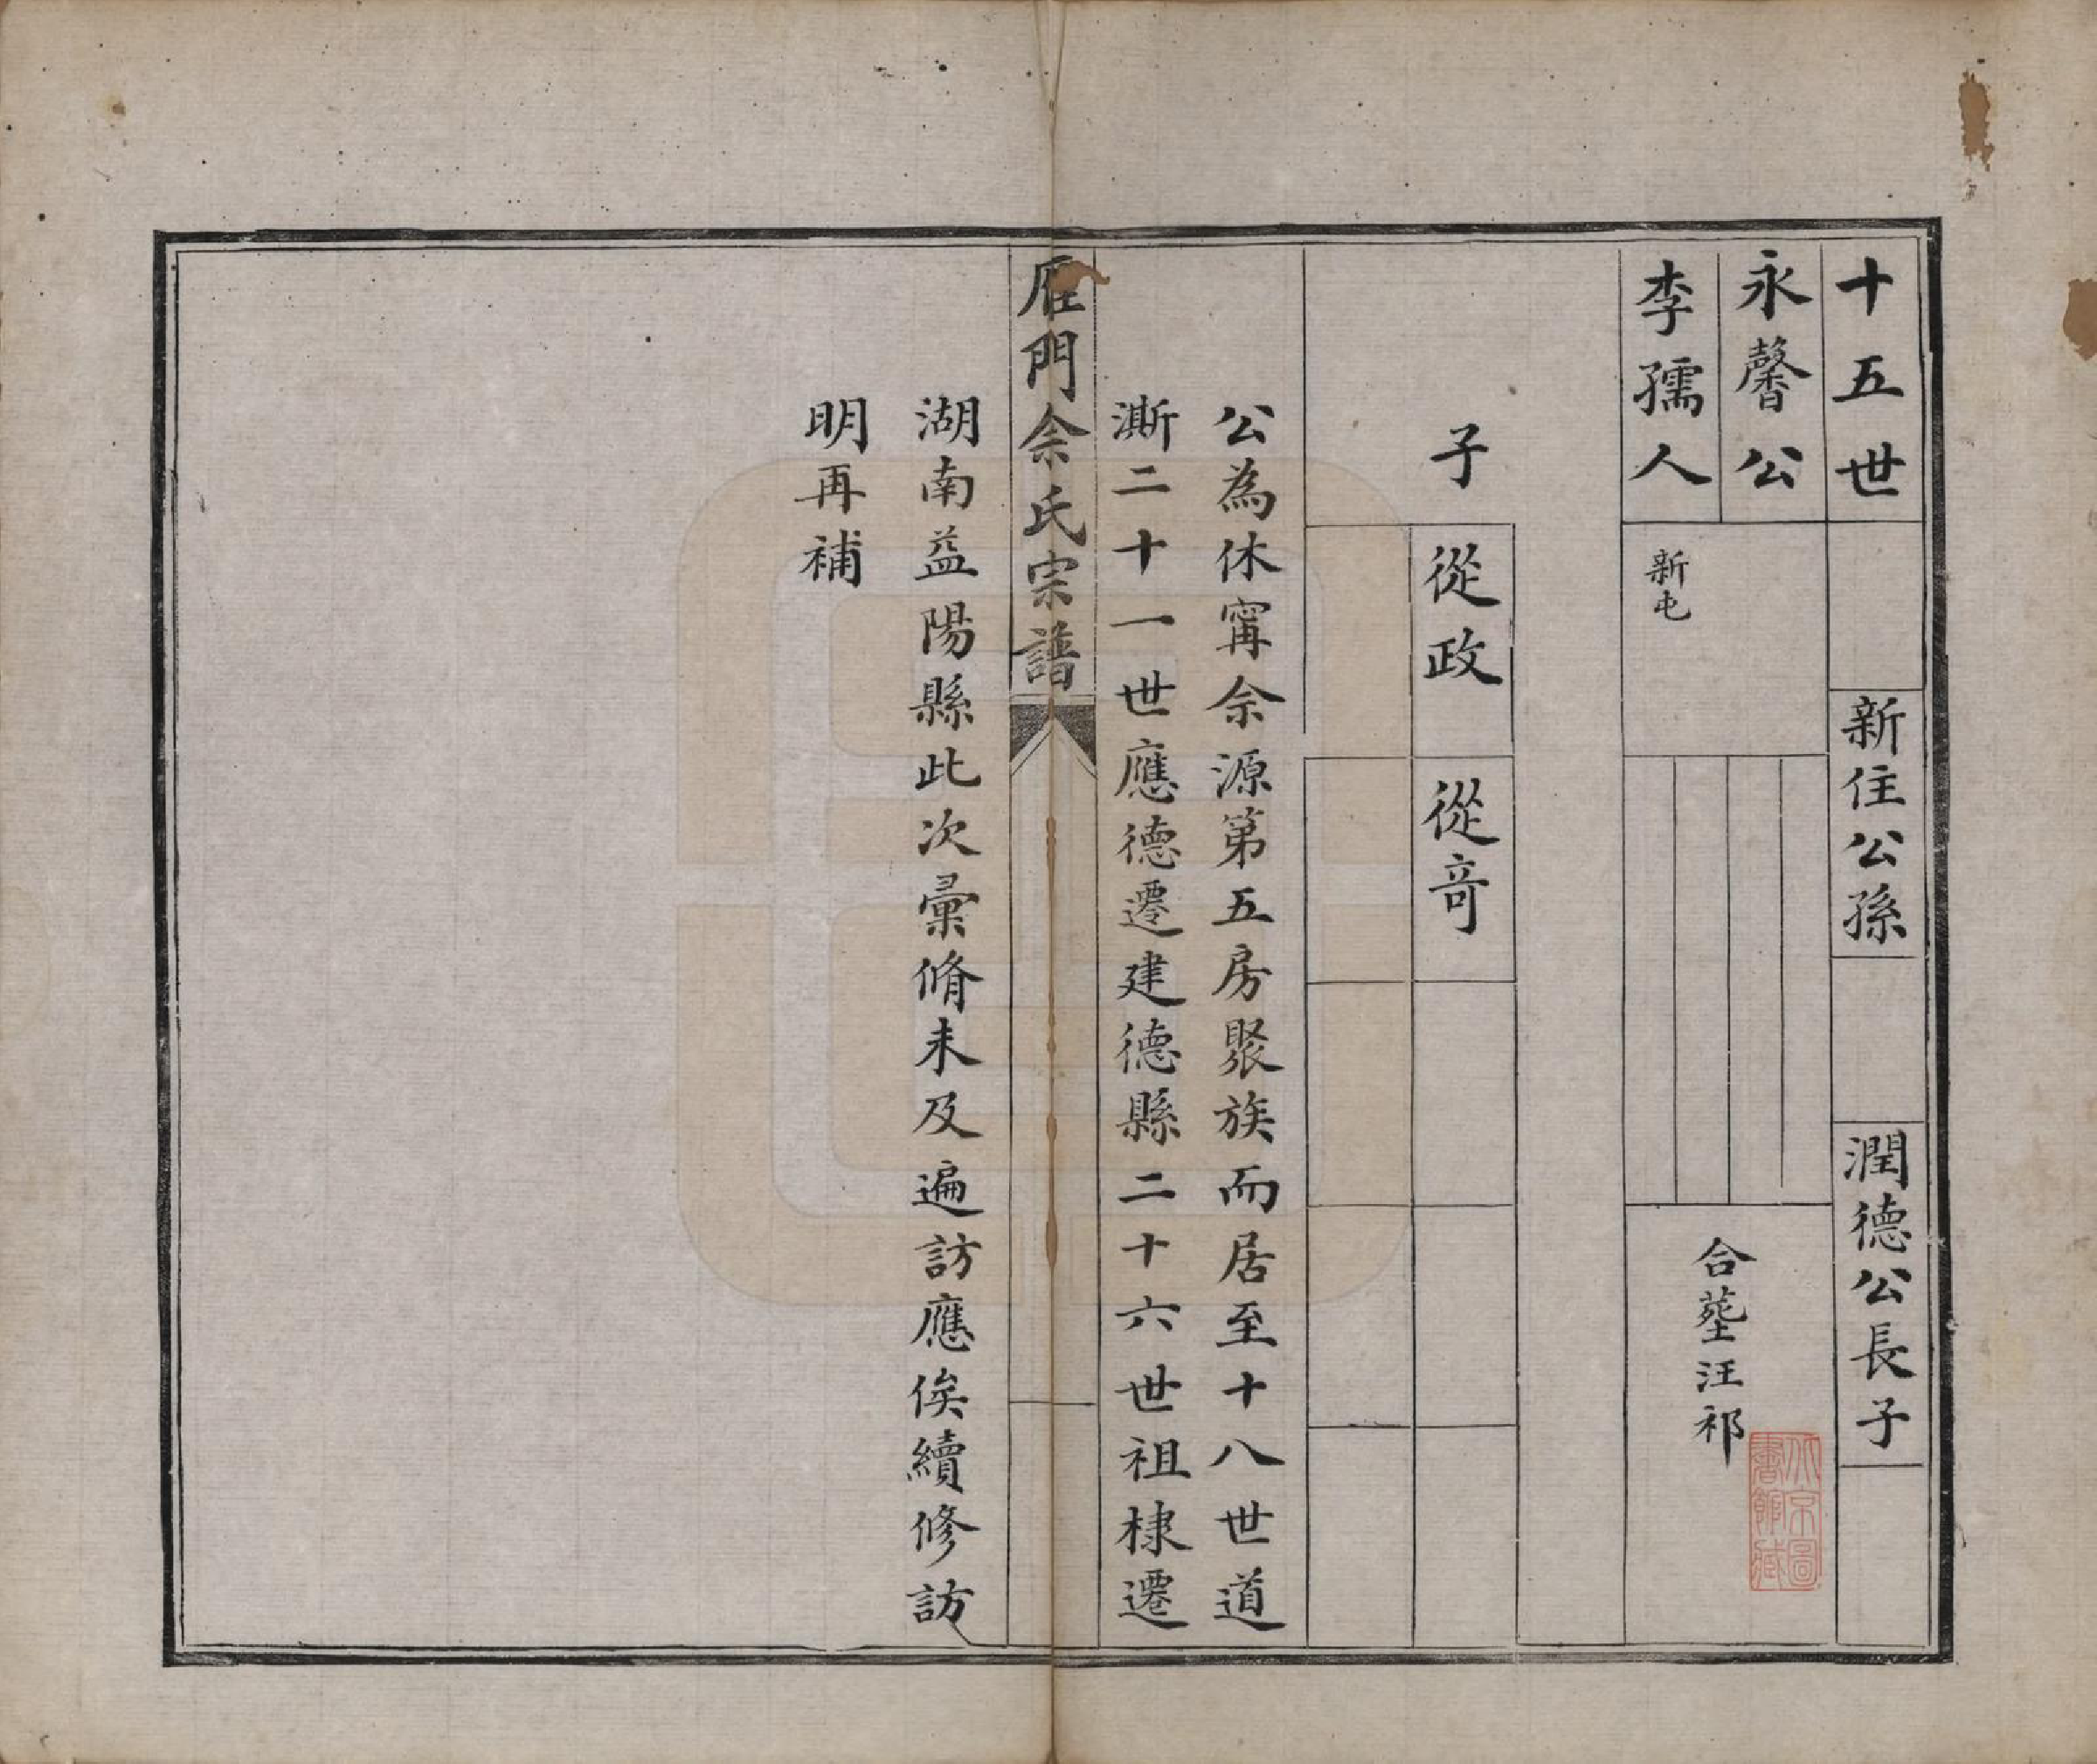 十五世 新住公孫 潤德公長子
永馨公
李孺人 新屯
合塟汪祁
北京圖書館藏
子 從政 從竒
公為休寗佘源第五房聚族而居至十八世道
澌二十一世應德遷建德縣二十六世祖棣遷
雁門佘氏宗譜
湖南益陽縣此次彙脩未及遍訪應俟續修訪
明再補